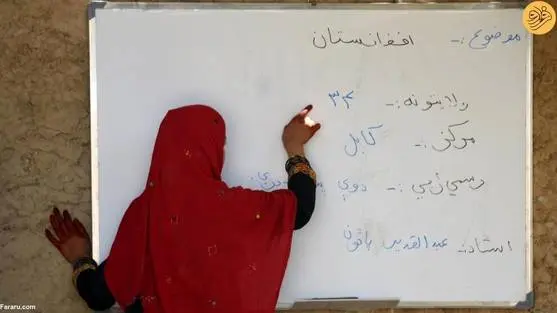 موضوع :- افغانستان
ولایتونه :- ۳۴
مرکز :- کابل
رسمي ژبې :- دوې
استاد: عبدالقدیر
فرارو
Fararu.com